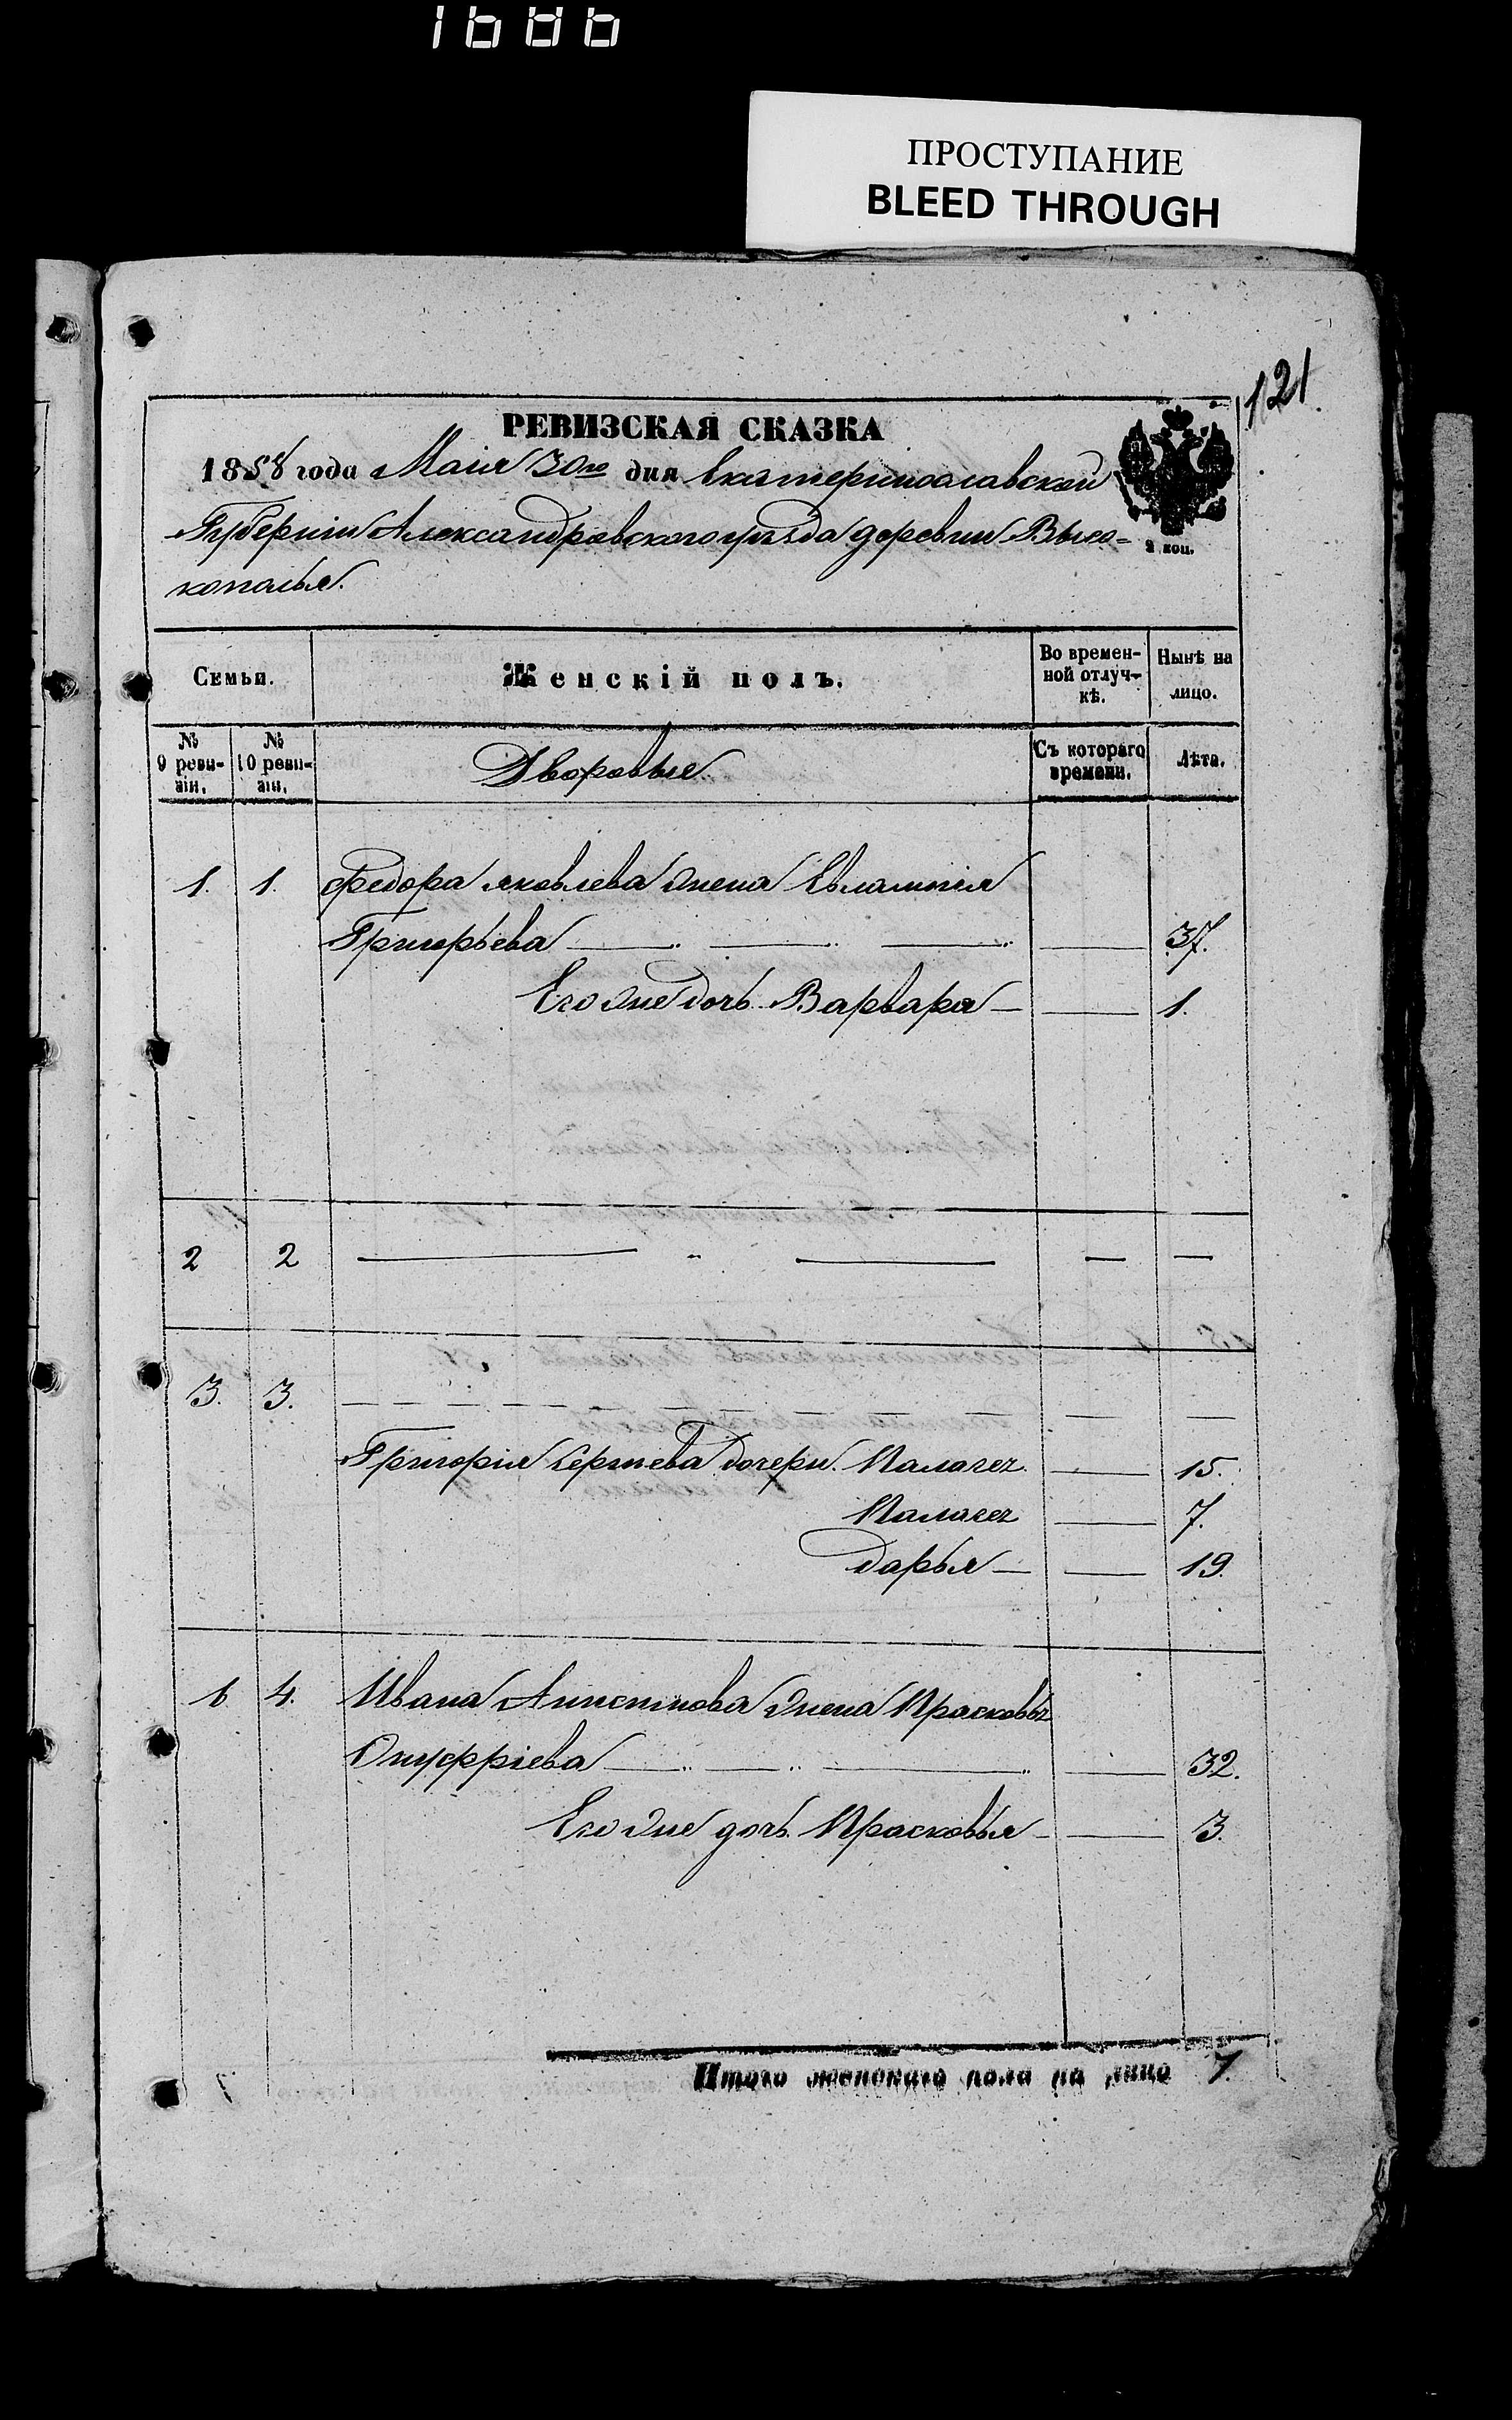 1686
ПРОСТУПАНИЕ
BLEED THROUGH
121
РЕВИЗСКАЯ СКАЗКА
1858 года Маія 30го дня Екатеринославской
Губерніи Александровского уѣзда деревни Высо-
кополья.
2 коп.
Семьи. Женскій полъ. Во времен-ной отлуч-кѣ. Нынѣ на лицо.
№ 9 реви-зіи. № 10 реви-зіи. Дворовые. Съ котораго времени. Лѣта.
1. 1. Федора Яковлева жена Евлампія
Григорьева 37.
Его же дочь Варвара 1.
2 2
3. 3.
Григорія Сергѣева дочери. Палагея 15.
Палагея 7.
Дарья 19.
6 4. Ивана Антипова жена Прасковья
Онуфріева 32.
Его же дочь Прасковья 3.
Итого женскаго пола на лицо 7.